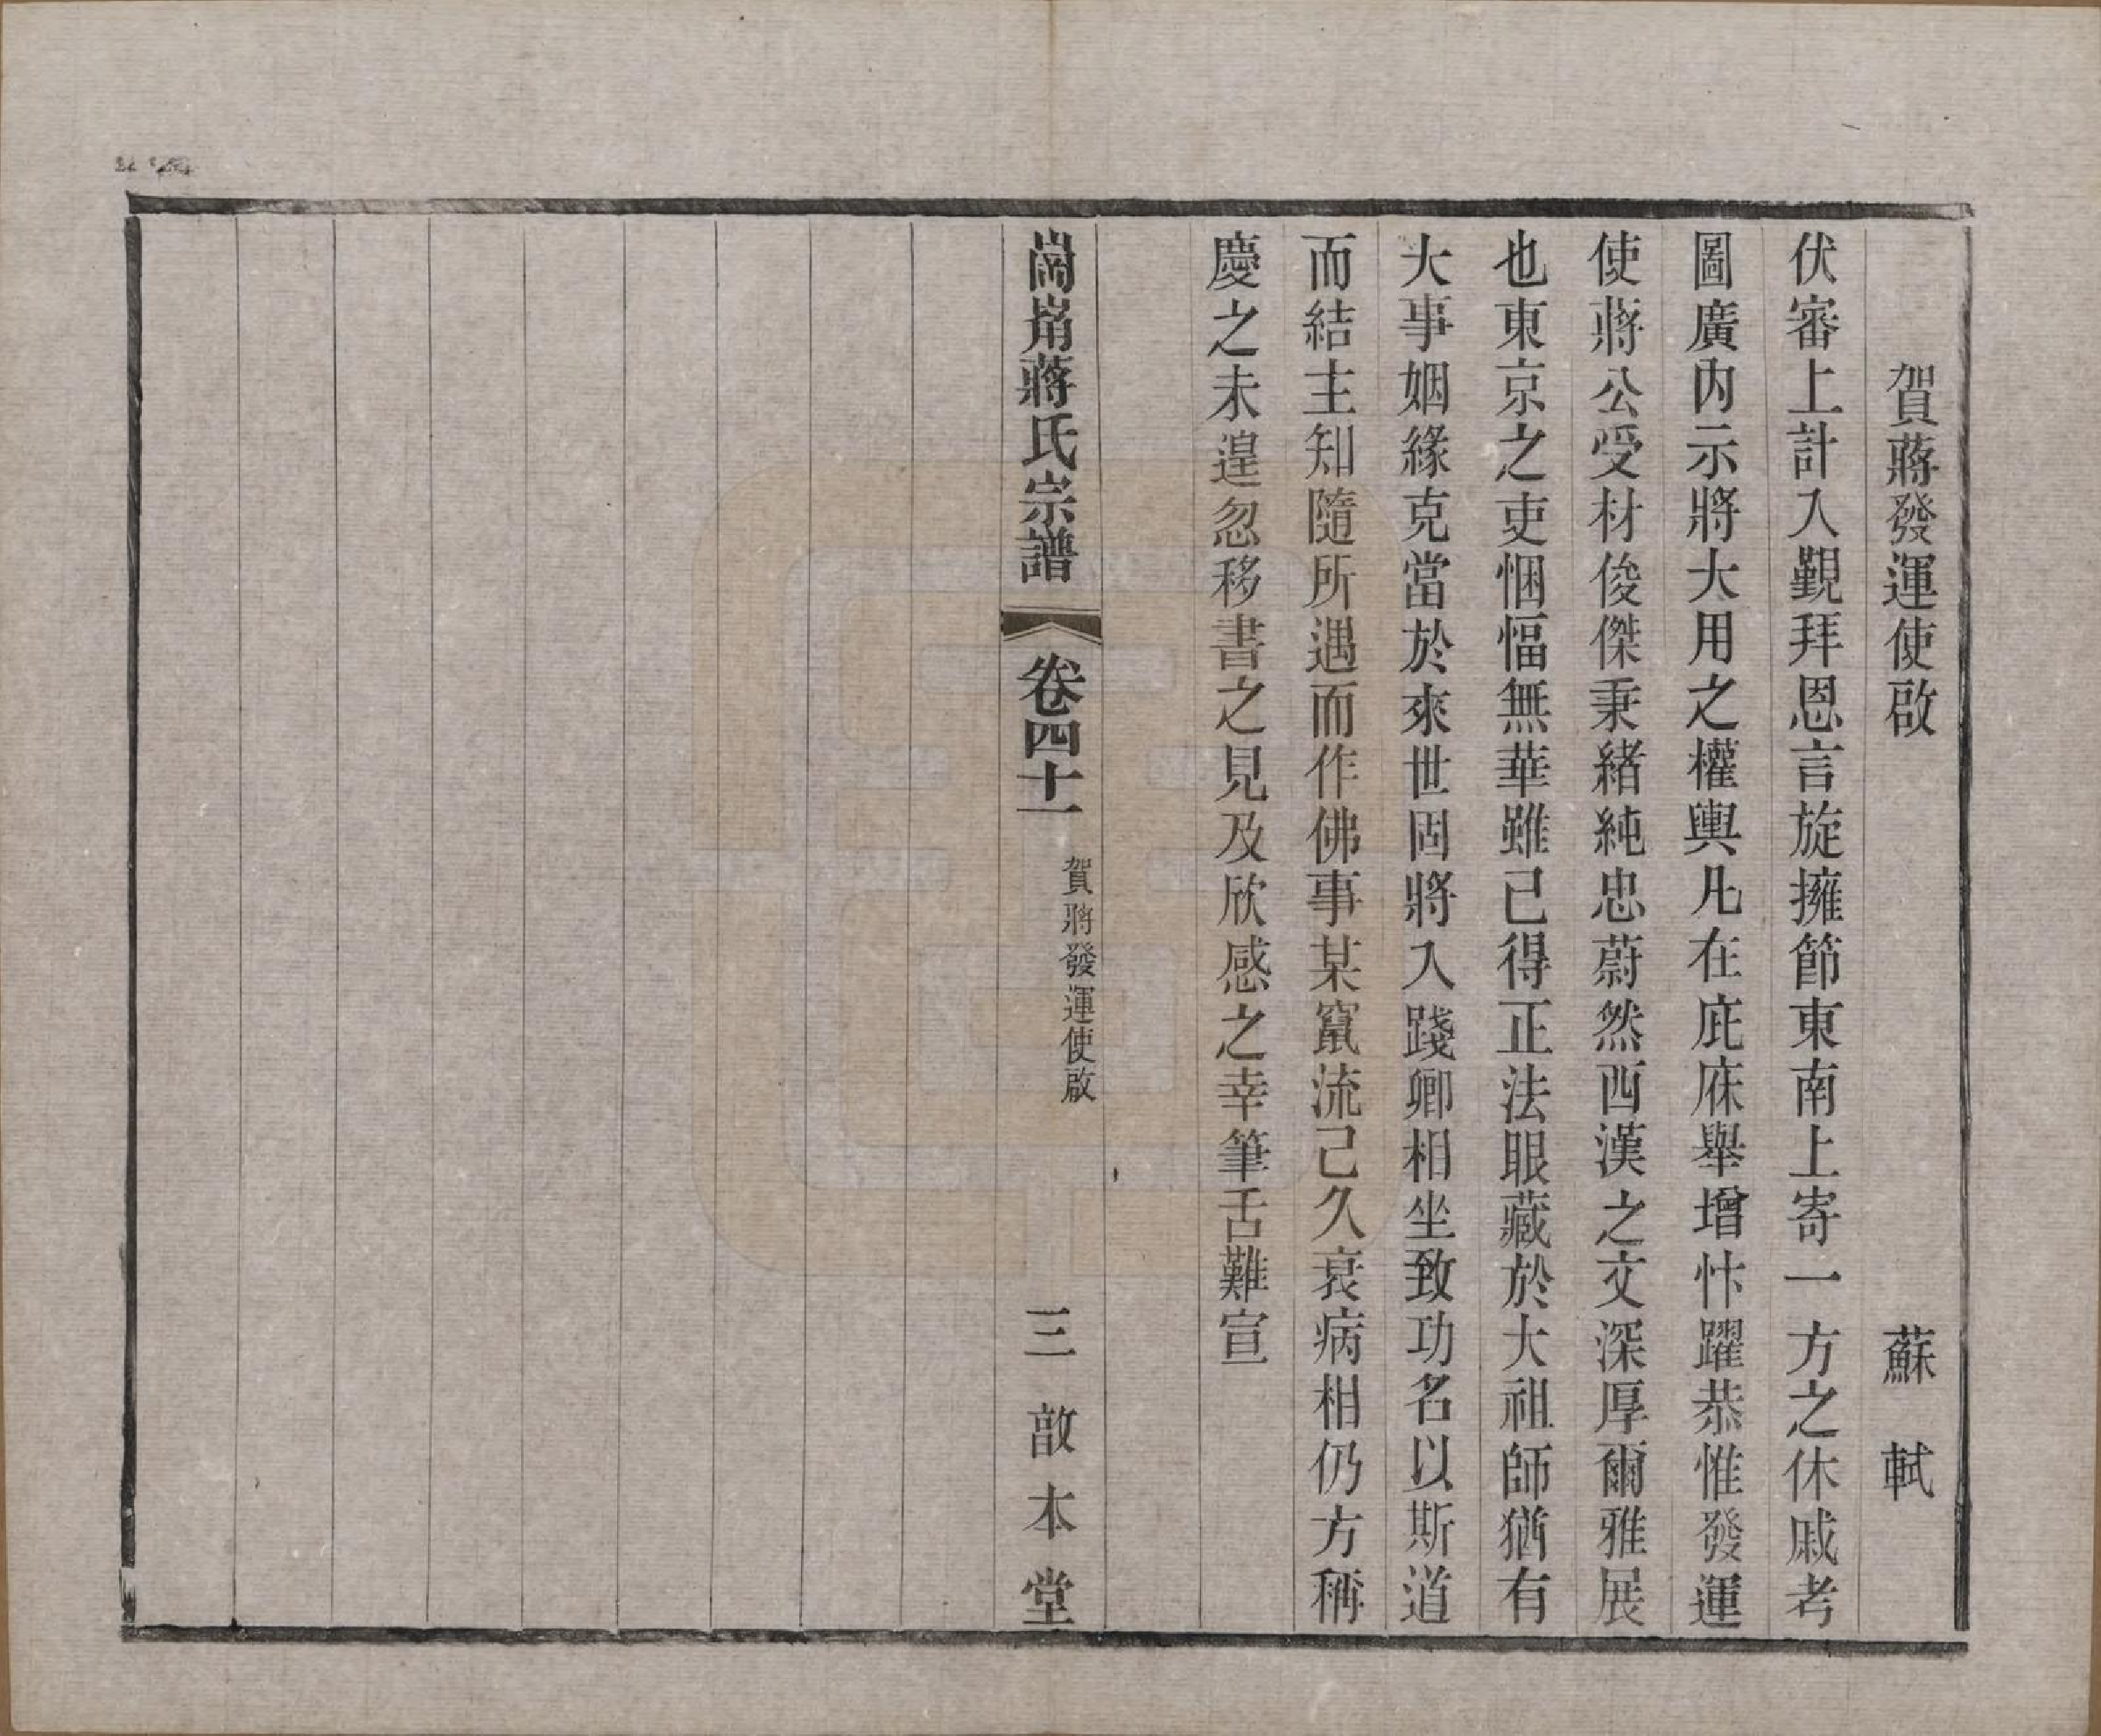 賀蔣發運使啟
蘇軾
伏審上計入覲拜恩言旋擁節東南上寄一方之休戚考
圖廣內示將大用之權輿凡在庇庥舉增忭躍恭惟發運
使蔣公受材俊傑秉緒純忠蔚然西漢之文深厚爾雅展
也東京之吏悃愊無華雖已得正法眼藏於大祖師猶有
大事姻緣克當於來世固將入踐卿相坐致功名以斯道
而結主知隨所遇而作佛事某竄流已久衰病相仍方稱
慶之未遑忽移書之見及欣感之幸筆舌難宣
蔣氏宗譜
卷四十一
賀蔣發運使啟
三
敔本堂